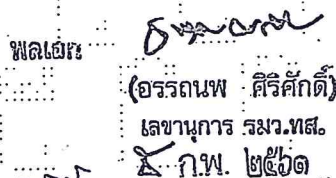 พลเอก
(อรรถนพ ศิริศักดิ์)
เลขานุการ รมว.ทส.
ก.พ. ๒๕๖๑